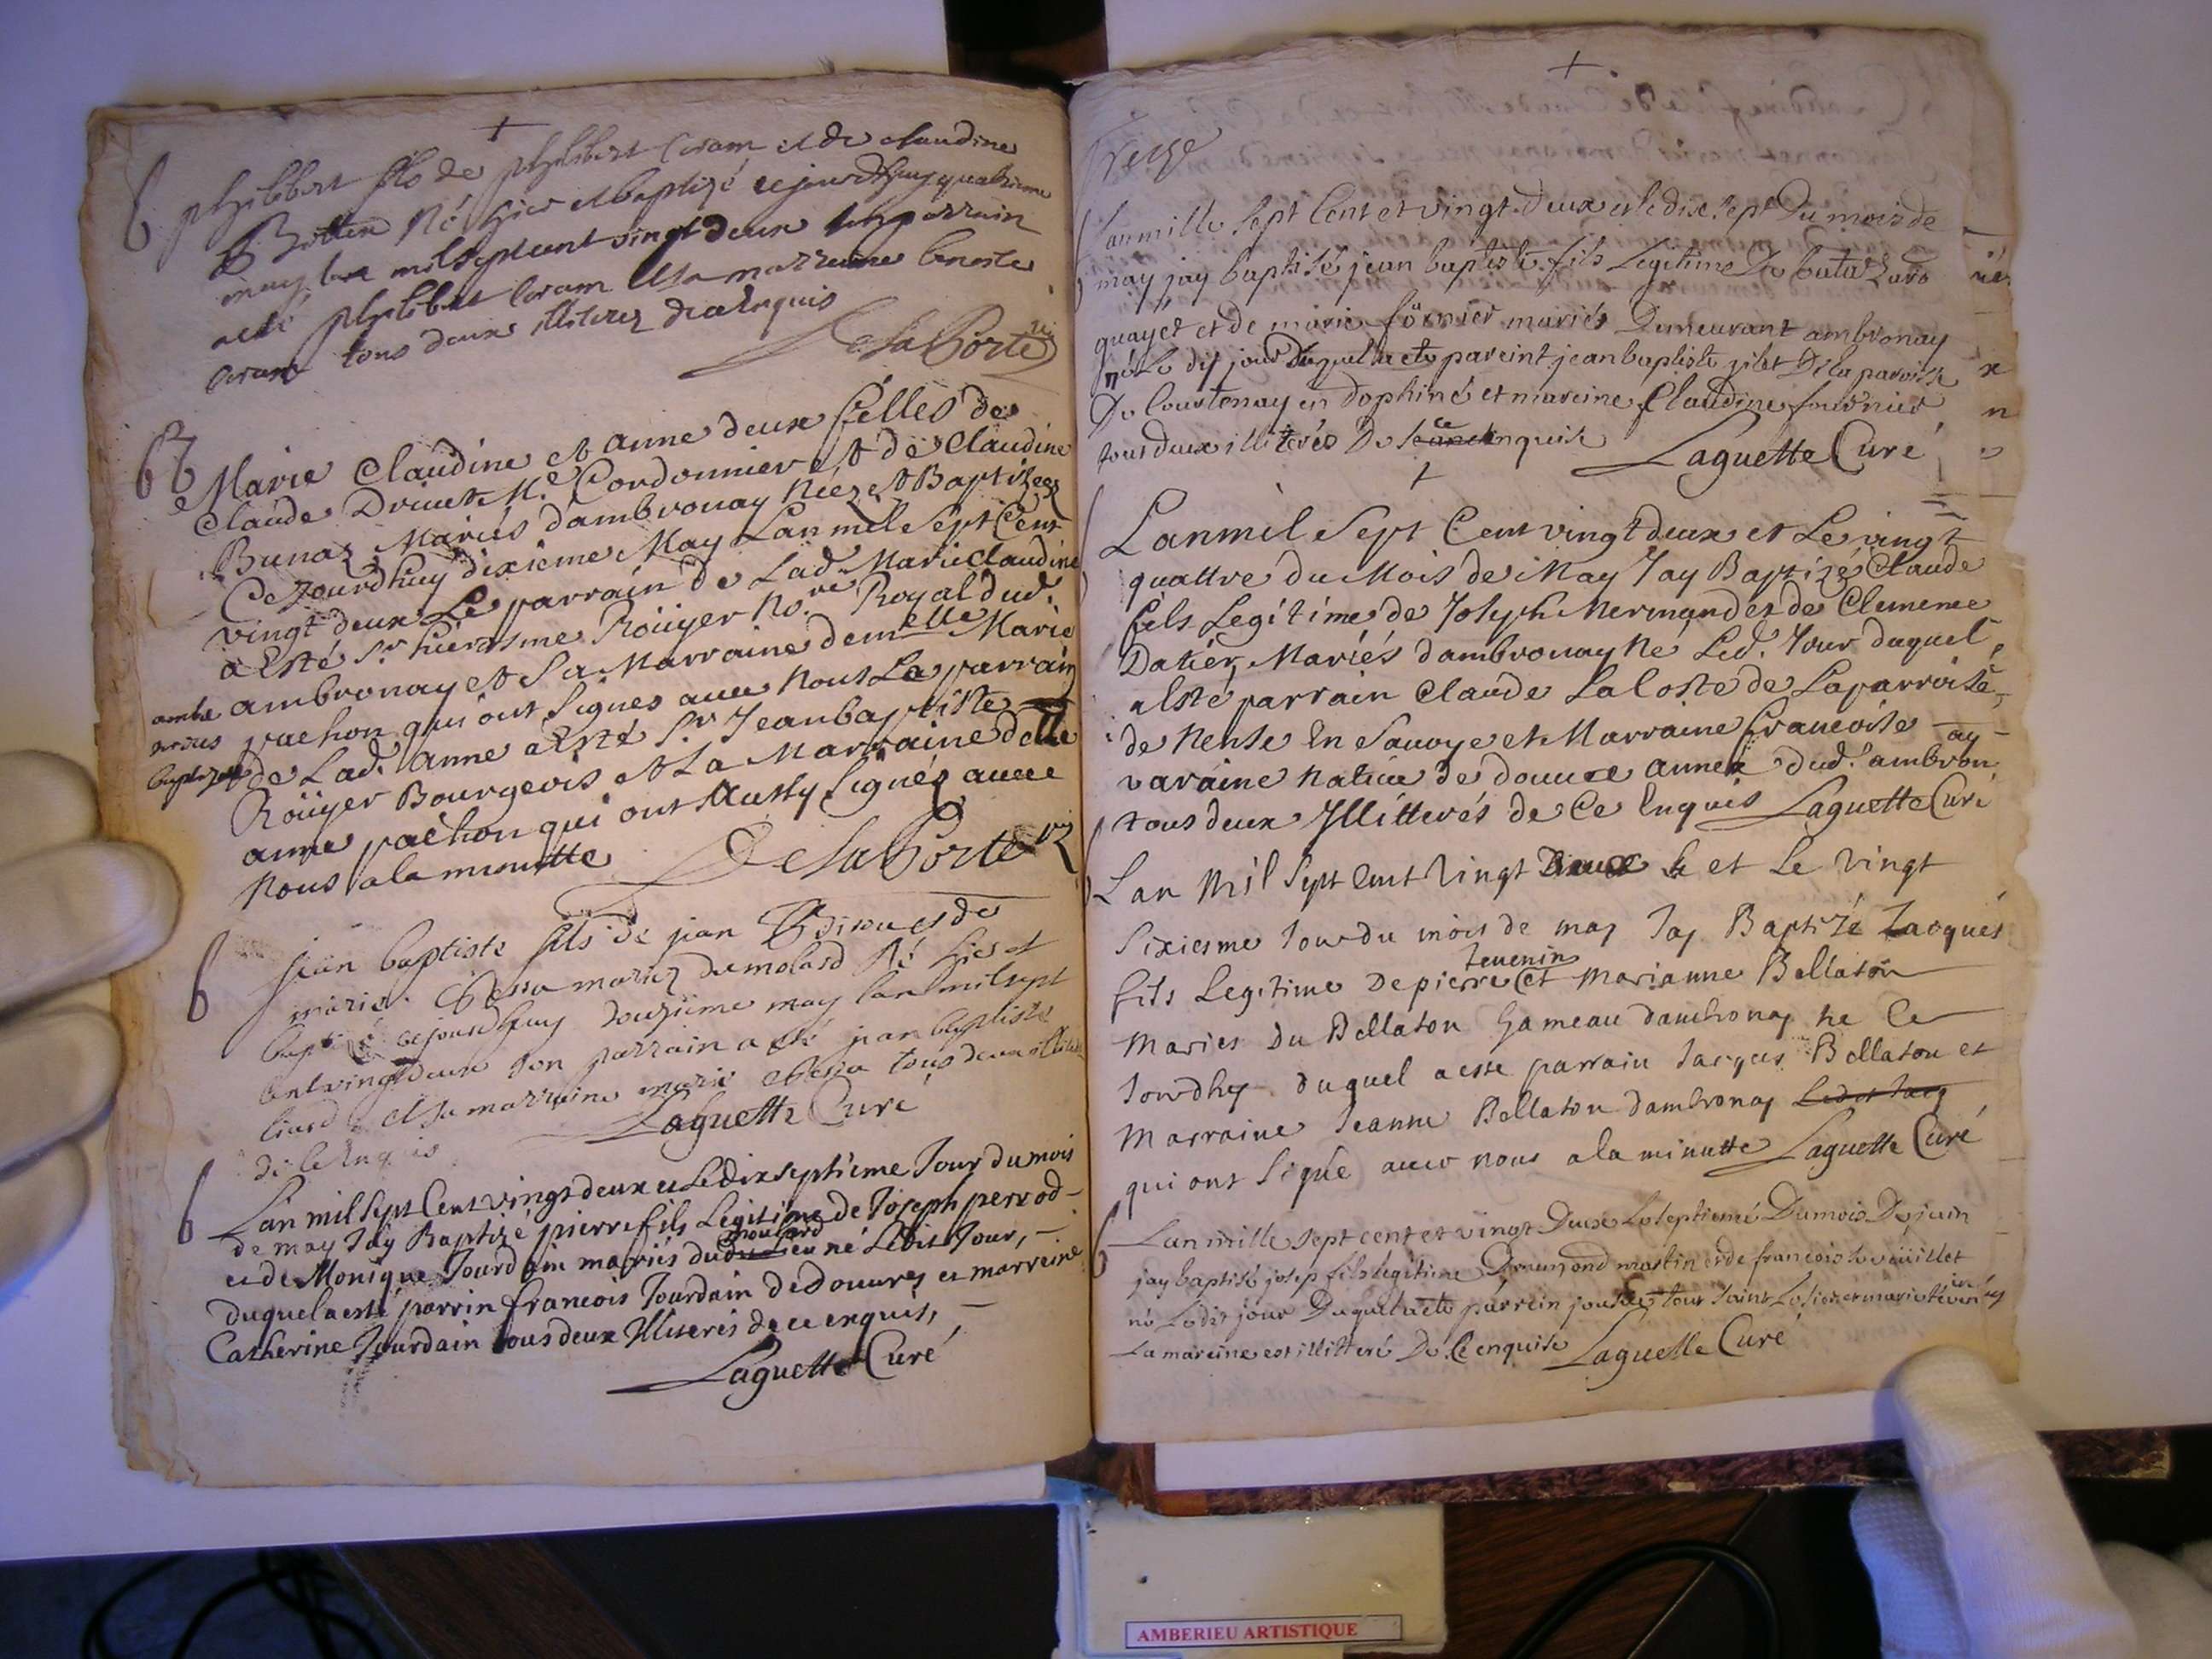 B philibert fils de philibert Coram et de claudine
Bottex Né hier et baptizé ce jourdhuy quatrieme
may lan mil sept cent vingt deux son parrain
a esté philibert Coram et sa marreine benoite
Coram tous deux illiterez de ce enquis
DeLaPorte vic
BB Marie Claudine et anne deux filles de
Claude Drivet Me Cordonnier et de Claudine
Bunaz Mariés dambronay Néez et Baptizeez
Cejourdhuy dixième May Lan mil Sept Cent
vingt deux Le parrain de Lad. Marie Claudine
a Esté Sr hierosme Roüyer No.re Royal dud.
ambronay et Sa Marraine demelle Marie
pachon qui ont Signes avec Nous Le parrain
de Lad. anne a Esté Sr Jeanbaptiste
Roüyer Bourgeois et La Marraine delle
anne pachon qui ont Aussy Signés avec
Nous a la minutte DeLaPorte vic
B jean baptiste fils de jean et de
marie mariez du molard Né hier et
baptizé cejourdhuy douzieme may lan mil sept
cent vingt deux son parrain a esté jean baptiste
liard et sa marraine marie tous deux
de ce Enquis Laguette Curé
B Lan mil sept Cent vingt deux et Le dix septieme Jour du mois
de may Jay Baptizé pierre fils Legitime de Joseph perrod
moulard
et de Monique Jourdain mariés dud né Ledit Jour,
duquel a esté parrin francois Jourdain de Douvres et marreine
Catherine Jourdain tous deux Illiterés de ce enquis,
Laguette Curé
treize
Lan mille Sept Cent et vingt deux et le dix sept Du mois de
may jay baptisé jean baptiste fils Legitime De
quayet et de marie förnier mariés Demeurant ambronay
né Le dit jour Duquel a ete pareint jean baptiste gilet De la paroisse
De Courtenay en dophiné et mareine Claudine fournier
tous deux illiterés De ce enquise Laguette Curé
Lan mil Sept Cent vingt deux et Le vingt
quattre du Mois de May Jay Baptizé Claude
fils Legitime de Joseph Mermand et de Clemence
Datier Mariés dambronay Né Led. Jour duquel
a Esté parrain Claude La Coste de Laparroisse
de en Savoye et Marraine francoise
varaine Native de douvre annex dud. ambron
tous deux Illitterés de Ce Enquis Laguette Curé
Lan Mil Sept Cent Vingt Deux et Le Vingt
Sixiesme Jour du mois de may Jay Baptizé Jacques
tevenin
fils Legitime De pierre et Marianne Bellaton
Mariés Du Bellaton hameau dambronay né Ce
Jourdhuy duquel a esté parrain Jacques Bellaton et
Marraine Jeanne Bellaton dambronay
qui ont Signé avec nous a la minutte Laguette Curé
B Lan mille sept cent et vingt Deux Le septieme Du mois De juin
jay baptisé josep fils legitime De martin et de francoise
né Ledit jour Duquel a ete parrein et marie
La mareine est illitteré De Ce enquise Laguette Curé
AMBERIEU ARTISTIQUE